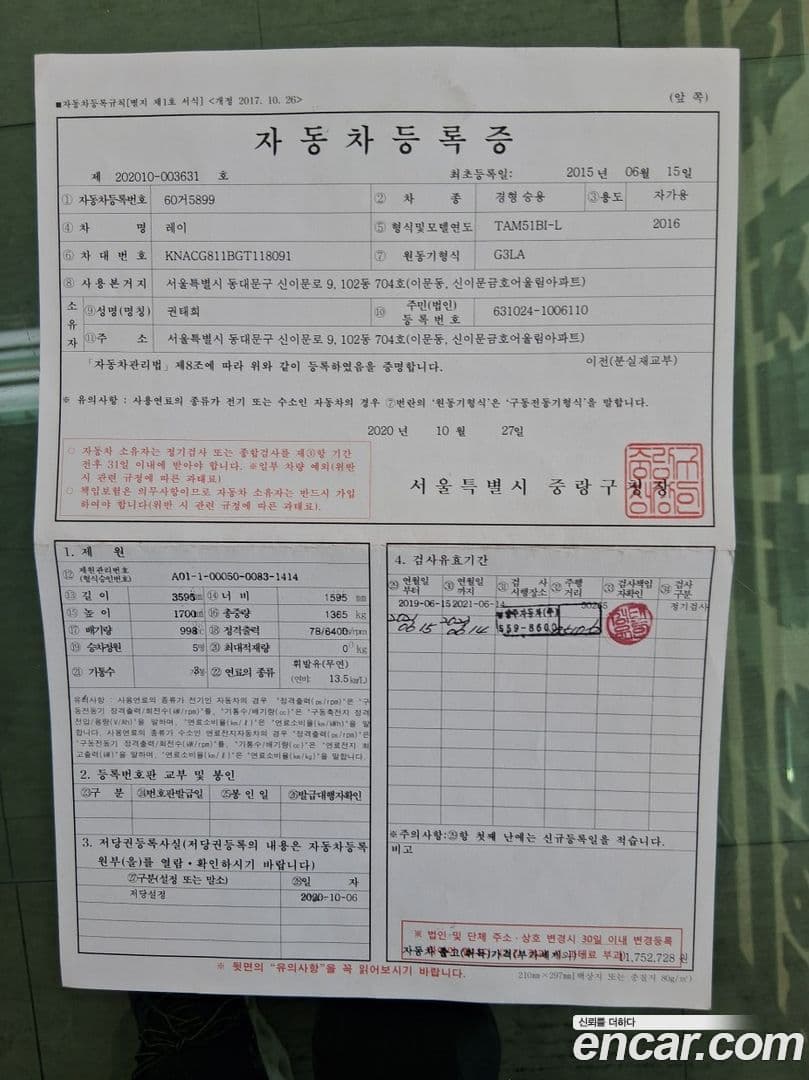 ■자동차등록규칙[별지 제1호 서식] <개정 2017. 10. 26>
(앞 쪽)
자동차등록증
제 202010-003631 호 최초등록일: 2015년 06월 15일
① 자동차등록번호 60거5899 ② 차 종 경형 승용 ③용도 자가용
④ 차 명 레이 ⑤ 형식및모델연도 TAM51BI-L 2016
⑥ 차 대 번 호 KNACG811BGT118091 ⑦ 원동기형식 G3LA
⑧ 사용본거지 서울특별시 동대문구 신이문로 9, 102동 704호(이문동, 신이문금호어울림아파트)
소유자 ⑨성명(명칭) 권태희 ⑩ 주민(법인)등록번호 631024-1006110
⑪주 소 서울특별시 동대문구 신이문로 9, 102동 704호(이문동, 신이문금호어울림아파트)
「자동차관리법」 제8조에 따라 위와 같이 등록하였음을 증명합니다. 이전(분실재교부)
※ 유의사항 : 사용연료의 종류가 전기 또는 수소인 자동차의 경우 ⑦번란의 '원동기형식'은 '구동전동기형식'을 말합니다.
2020 년 10 월 27일
○ 자동차 소유자는 정기검사 또는 종합검사를 제③항 기간
전후 31일 이내에 받아야 합니다. ※일부 차량 예외(위반
시 관련 규정에 따른 과태료)
○ 책임보험은 의무사항이므로 자동차 소유자는 반드시 가입
하여야 합니다(위반 시 관련 규정에 따른 과태료).
서울특별시 중랑구청장
1. 제 원
⑫ 제원관리번호
(형식승인번호) A01-1-00050-0083-1414
⑬ 길 이 3595mm ⑭ 너 비 1595 mm
⑮ 높 이 1700mm ⑯ 총중량 1365 kg
⑰ 배기량 998cc ⑱ 정격출력 78/6400
⑲ 승차정원 5명 ⑳ 최대적재량 0 kg
㉑ 기통수 3 ㉒ 연료의 종류 휘발유(무연)
(연비 13.5km/L)
유의사항 : 사용연료의 종류가 전기인 자동차의 경우 "정격출력(ps/rpm)"은 "구
동전동기 정격출력/최전수(kW/rpm)"를, "기통수/배기량(cc)"은 "구동축전지 정격
전압/용량(V/Ah)"을 말하며, "연료소비율(km/ℓ)"은 "연료소비율(km/kWh)"을 말
합니다. 사용연료의 종류가 수소인 연료전지자동차의 경우 "정격출력(ps/rpm)"은
"구동전동기 정격출력/회전수(kW/rpm)"를, "기통수/배기량(cc)"은 "연료전지 최
고출력(kW)"을 말하며, "연료소비율(km/ℓ)"은 "연료소비율(km/kg)"을 말합니다.
2. 등록번호판 교부 및 봉인
㉓구 분 ㉔번호판발급일 ㉕봉 인 일 ㉖발급대행자확인
3. 저당권등록사실(저당권등록의 내용은 자동차등록
원부(을)를 열람·확인하시기 바랍니다)
㉗구분(설정 또는 말소) ㉘일 자
저당설정 2020-10-06
4. 검사유효기간
㉙ 연월일부터 ㉚ 연월일까지 ㉛ 검 사 시행장소 ㉜ 주행거리 ㉝ 검사책임자확인 ㉞ 검사구분
2019-06-15 2021-06-14 정기검사
※주의사항:㉙항 첫째 난에는 신규등록일을 적습니다.
비고
※ 법인 및 단체 주소·상호 변경시 30일 이내 변경등록
※ 뒷면의 "유의사항"을 꼭 읽어보시기 바랍니다.
210mm×297mm[백상지 또는 중질지 80g/㎡]
신뢰를 더하다
encar.com